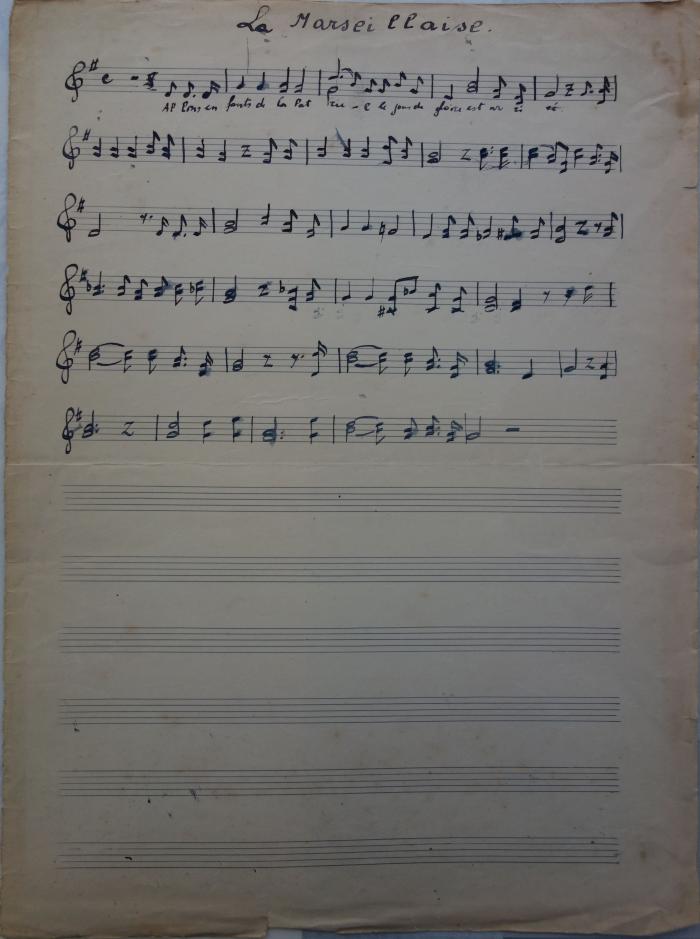 La Marseillaise.
Allons en fants de la Pat rie - e le jour de gloire est ar ri vé.